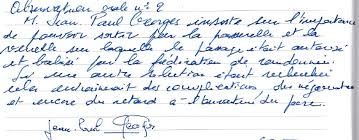 Observation orale n° 2
M. Jean Paul Georges insiste sur l'importance
de pouvoir rester par la passerelle et la
sur laquelle le passage était autorisé
et balisé par la fédération de randonnée.
Si une autre solution était recherchée
cela entrainerait des complications, des négociations
et encore du retard à l'ouverture du parc.
Jean-Paul Georges